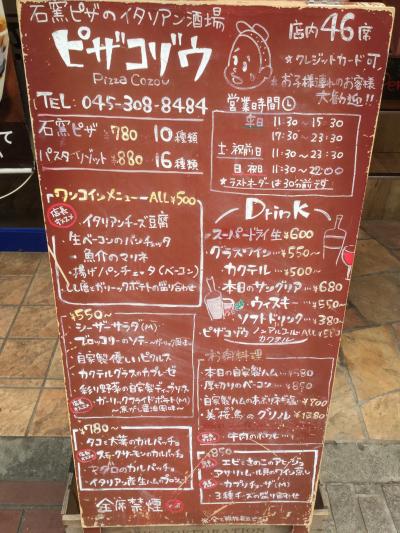 石窯ピザのイタリアン酒場
ピザコゾウ
Pizza Cozou
TEL: 045-308-8484
店内46席
★クレジットカード可
★お子様連れのお客様
大歓迎!!
営業時間
平日 11:30~15:30
17:30~23:30
土・祝前日 11:30~23:30
日・祝日 11:30~22:00
★ラストオーダーは30分前です
石窯ピザ ¥780 10種類
パスタ・リゾット ¥880 16種類
ワンコインメニュー ALL ¥500
イタリアンチーズ豆腐
・生ベーコンのパンチェッタ
・魚介のマリネ
・揚げパンチェッタ(ベーコン)
¥550~
・シーザーサラダ(M)
・ブロッコリーのソテー
・自家製優しいピクルス
・カクテルグラスのカプレーゼ
・彩り野菜の自家製ディップソース
・ガーリックフライドポテト(M)
¥780~
・タコと大葉のカルパッチョ
・スモークサーモンのカルパッチョ
・マグロのカルパッチョ
・イタリア産生ハムプロシュート
全席禁煙
Drink
スーパードライ生 ¥600
グラスワイン ¥550~
カクテル ¥500~
本日のサングリア ¥680
ウィスキー ¥550~
ソフトドリンク ¥380
ピザコゾウ ノンアルコールカクテル ALL
お肉料理
・本日の自家製ハム ¥580
・厚切りのベーコン ¥850
・自家製ハムの ¥700
・美桜鳥のグリル ¥1380
・エビときのこのアヒージョ
・アサリとムール貝のワイン蒸し
・カプリチョーザ(M)
・3種チーズの盛り合わせ